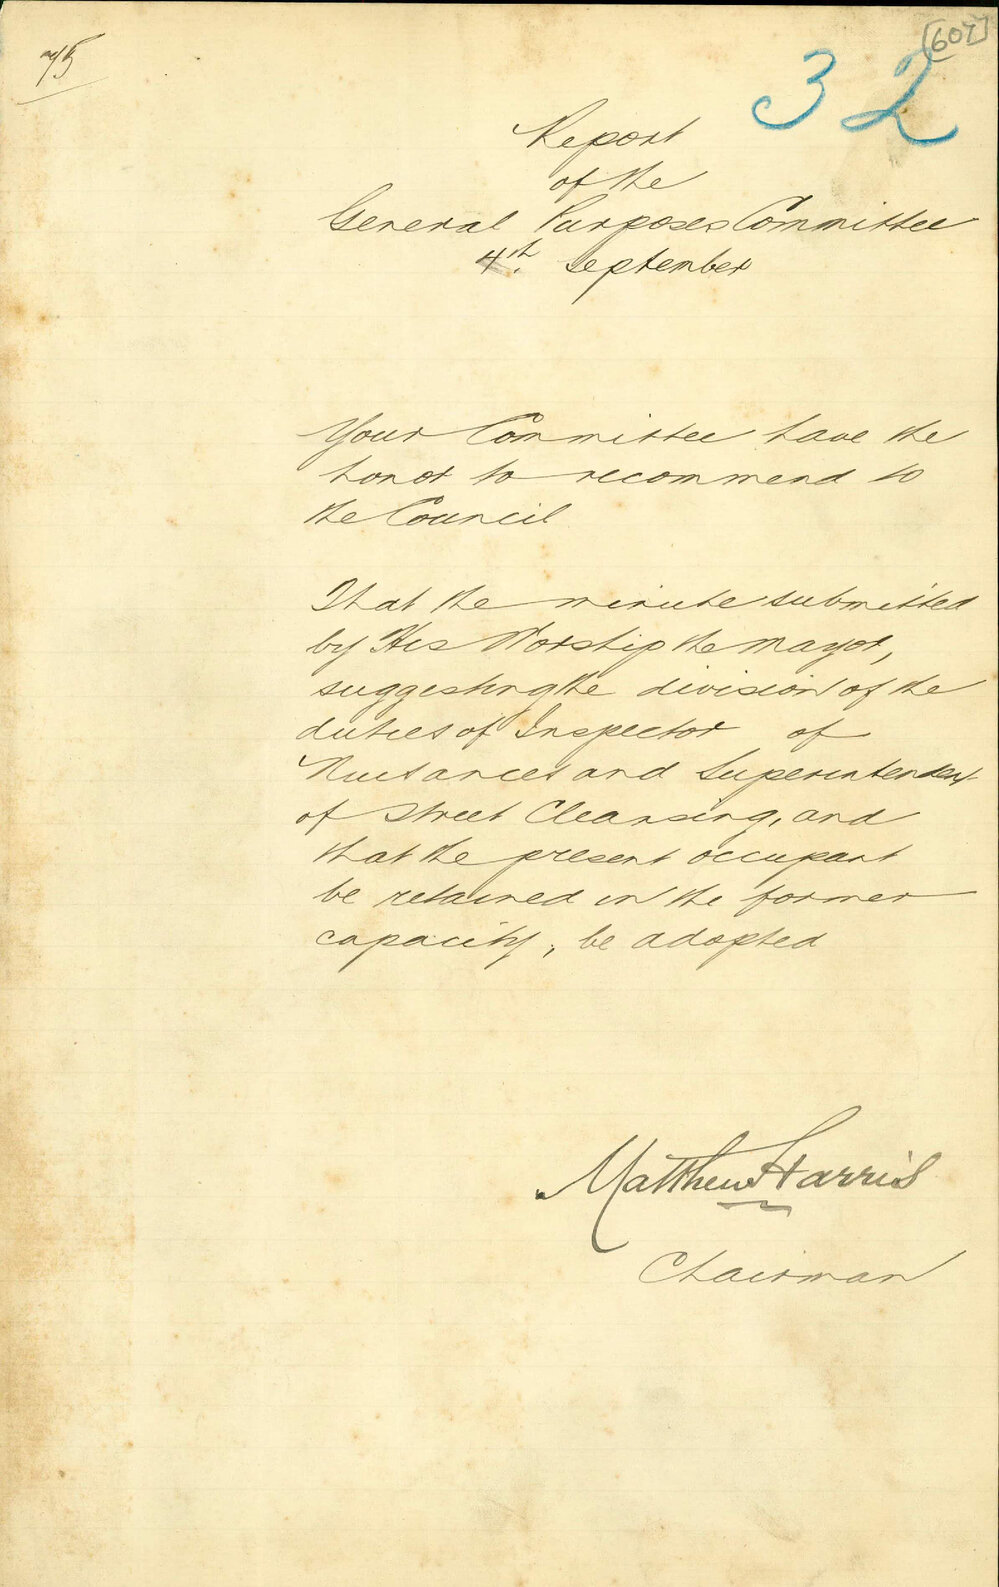 75
[607]
32
Report
of the
General Purposes Committee
4th. September
Your Committee have the
honor to recommend to
the Council
That the minute submitted
by His Worship the Mayor,
suggesting the division of the
duties of Inspector of
Nuisances and Superintendent
of Street Cleansing, and
that the present occupant
be retained in the former
capacity, be adopted
Matthew Harris
Chairman